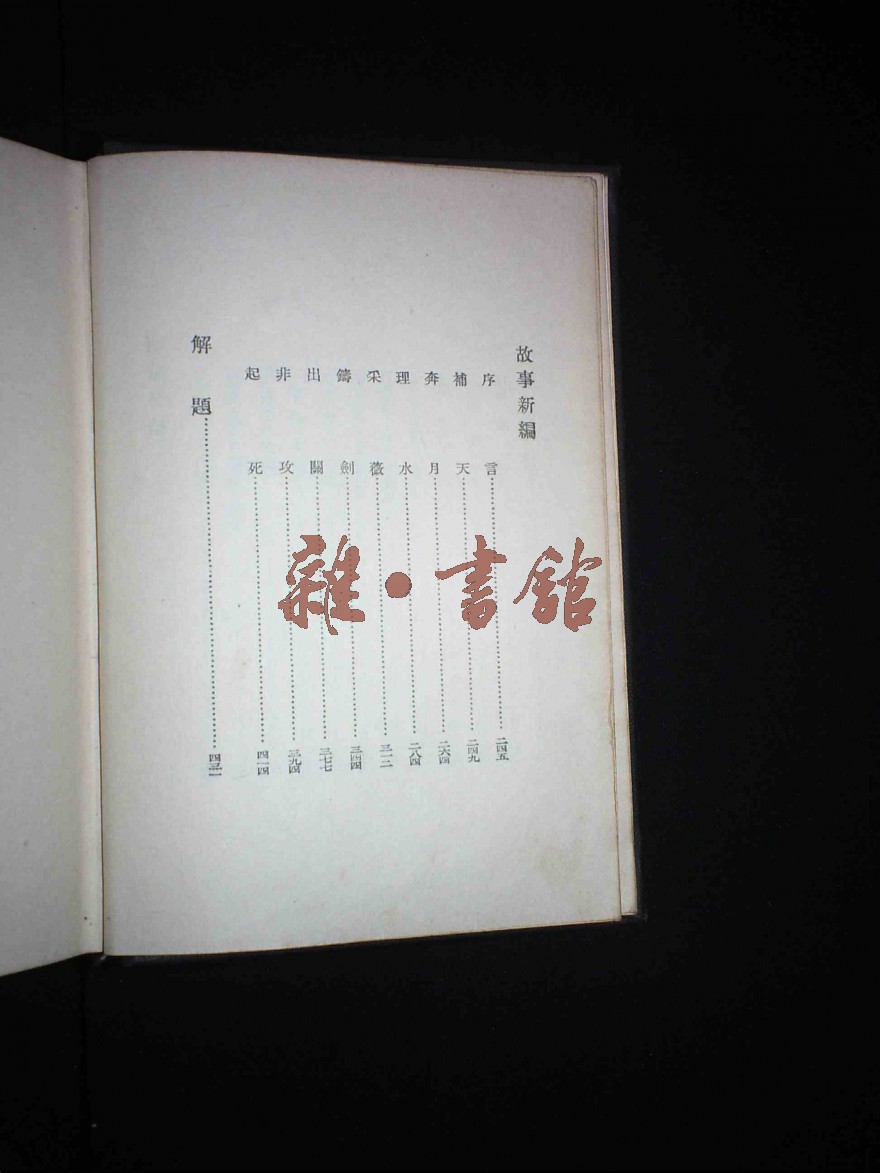 故事新編
序言……二四五
補天……二四九
奔月……二六四
理水……二八四
采薇……三一二
鑄劍……三四四
出關……三七七
非攻……三九四
起死……四一四
解題……四三一
雜·書館